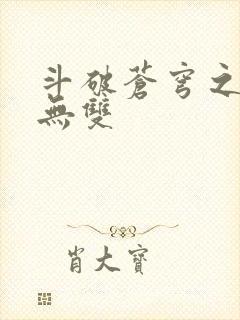 斗破蒼穹之
無雙
肖大寶